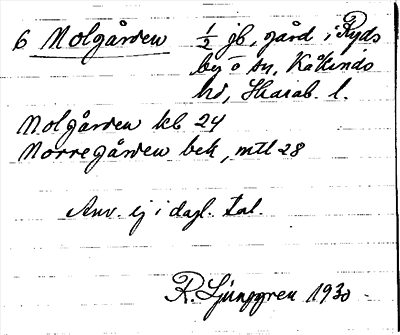 6 Nolgården ½ jb, gård i Ryds
by o sn, Kåkinds
hd, Skarab. l.
Nolgården kb 24
Norregården bek, mtl 28
Anv. ej i dagl. tal.
R. Ljunggren 1930